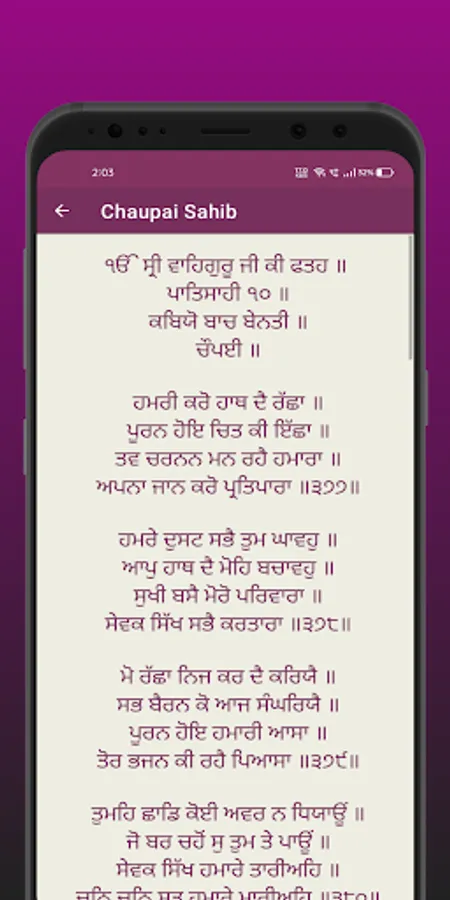 2:03
52%
Chaupai Sahib
ੴ ਸ੍ਰੀ ਵਾਹਿਗੁਰੂ ਜੀ ਕੀ ਫਤਹ ॥
ਪਾਤਿਸਾਹੀ ੧੦ ॥
ਕਬਿਯੋ ਬਾਚ ਬੇਨਤੀ ॥
ਚੌਪਈ ॥
ਹਮਰੀ ਕਰੋ ਹਾਥ ਦੈ ਰੱਛਾ ॥
ਪੂਰਨ ਹੋਇ ਚਿਤ ਕੀ ਇੱਛਾ ॥
ਤਵ ਚਰਨਨ ਮਨ ਰਹੈ ਹਮਾਰਾ ॥
ਅਪਨਾ ਜਾਨ ਕਰੋ ਪ੍ਰਤਿਪਾਰਾ ॥੩੭੭॥
ਹਮਰੇ ਦੁਸਟ ਸਭੈ ਤੁਮ ਘਾਵਹੁ ॥
ਆਪੁ ਹਾਥ ਦੈ ਮੋਹਿ ਬਚਾਵਹੁ ॥
ਸੁਖੀ ਬਸੈ ਮੋਰੋ ਪਰਿਵਾਰਾ ॥
ਸੇਵਕ ਸਿੱਖ ਸਭੈ ਕਰਤਾਰਾ ॥੩੭੮॥
ਮੋ ਰੱਛਾ ਨਿਜ ਕਰ ਦੈ ਕਰਿਯੈ ॥
ਸਭ ਬੈਰਨ ਕੋ ਆਜ ਸੰਘਰਿਯੈ ॥
ਪੂਰਨ ਹੋਇ ਹਮਾਰੀ ਆਸਾ ॥
ਤੋਰ ਭਜਨ ਕੀ ਰਹੈ ਪਿਆਸਾ ॥੩੭੯॥
ਤੁਮਹਿ ਛਾਡਿ ਕੋਈ ਅਵਰ ਨ ਧਿਯਾਊਂ ॥
ਜੋ ਬਰ ਚਹੋਂ ਸੁ ਤੁਮ ਤੇ ਪਾਊਂ ॥
ਸੇਵਕ ਸਿੱਖ ਹਮਾਰੇ ਤਾਰੀਅਹਿ ॥
ਚੁਨਿ ਚੁਨਿ ਸਤ੍ਰ ਹਮਾਰੇ ਮਾਰੀਅਹਿ ॥੩੮੦॥